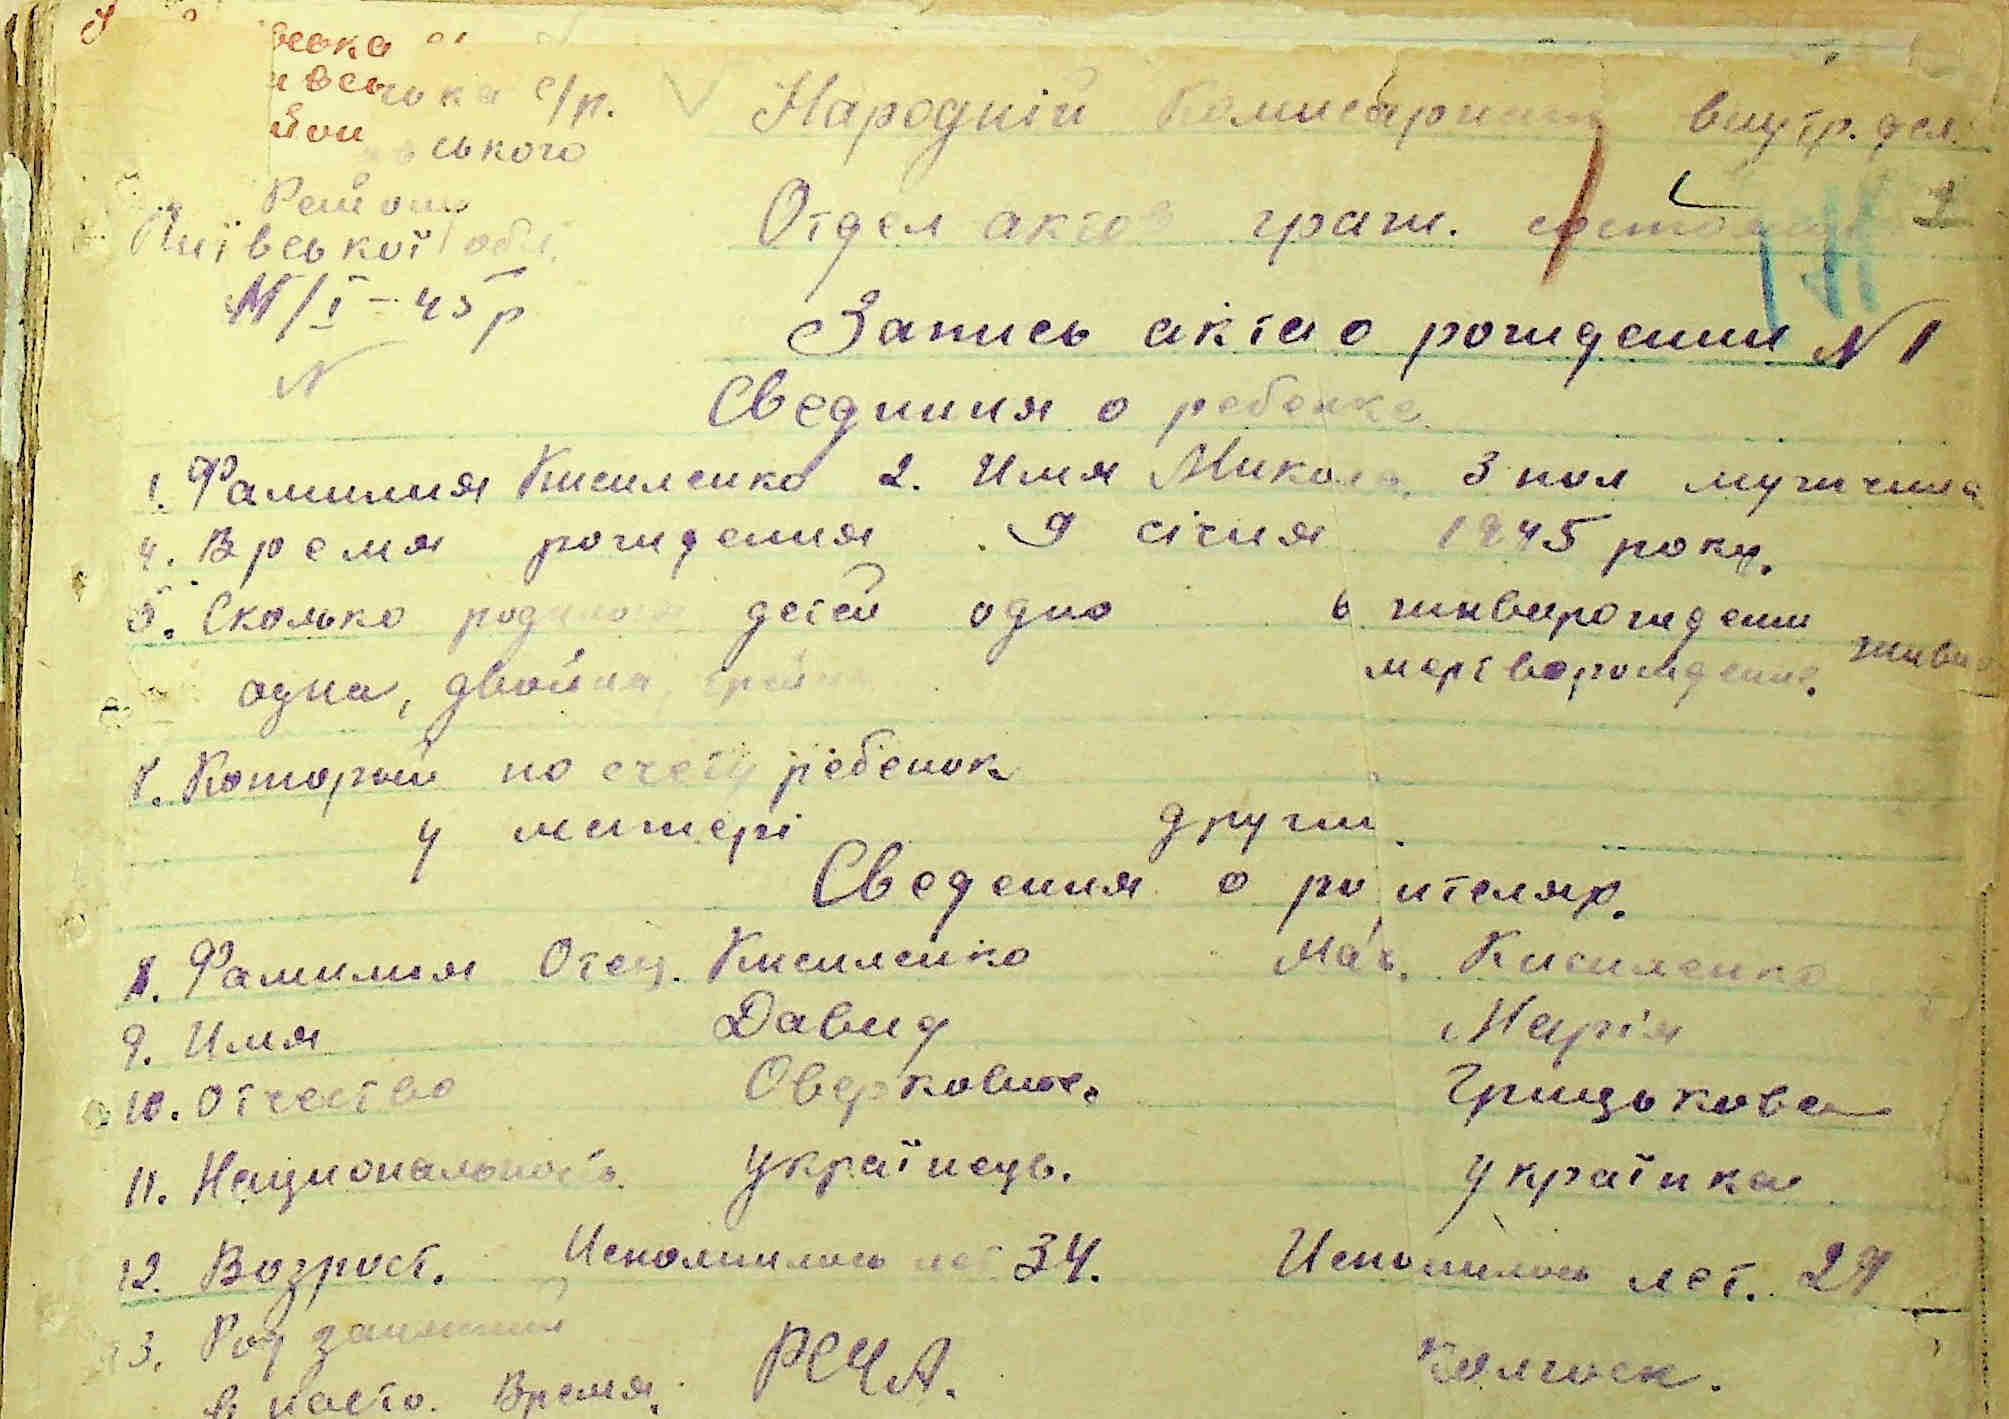 с/р.
ського
Район
Київської обл.
/І – 45 р
N
Народній Комисариат внутр. дел.
Отдел актов граж. состояния
Запись акта о рождении N 1
Свединия о ребенке
1. Фамилия Кисиленко 2. Имя Микола. 3 пол мужчина
4. Время рождения 9 січня 1945 року.
5. Сколько родилось детей одно 6 живварождени
одна, двойня, тройня мертворождение. живы
7. Которой по счету ребенок
у матері други
Сведения о родителях.
8. Фамилия Отец. Кисиленко Мать. Кисиленко
9. Имя Давид Марія
10. Отчество Оверкович. Грицькова
11. Националность українець. українка
12. Возрост. Исполнилось лет 34. Исполнилось лет. 24
13. Род занятия РСЧА. Колгосп.
в насто. Время.